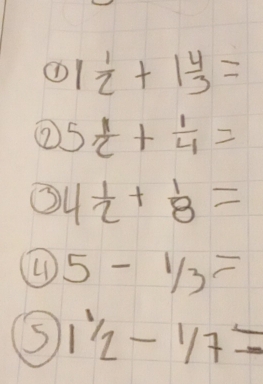 ① 1 1/2 + 1 4/3 =
② 5 1/2 + 1/4 =
③ 4 1/2 + 1/8 =
④ 5 - 1/3 =
⑤ 1 1/2 - 1/7 =